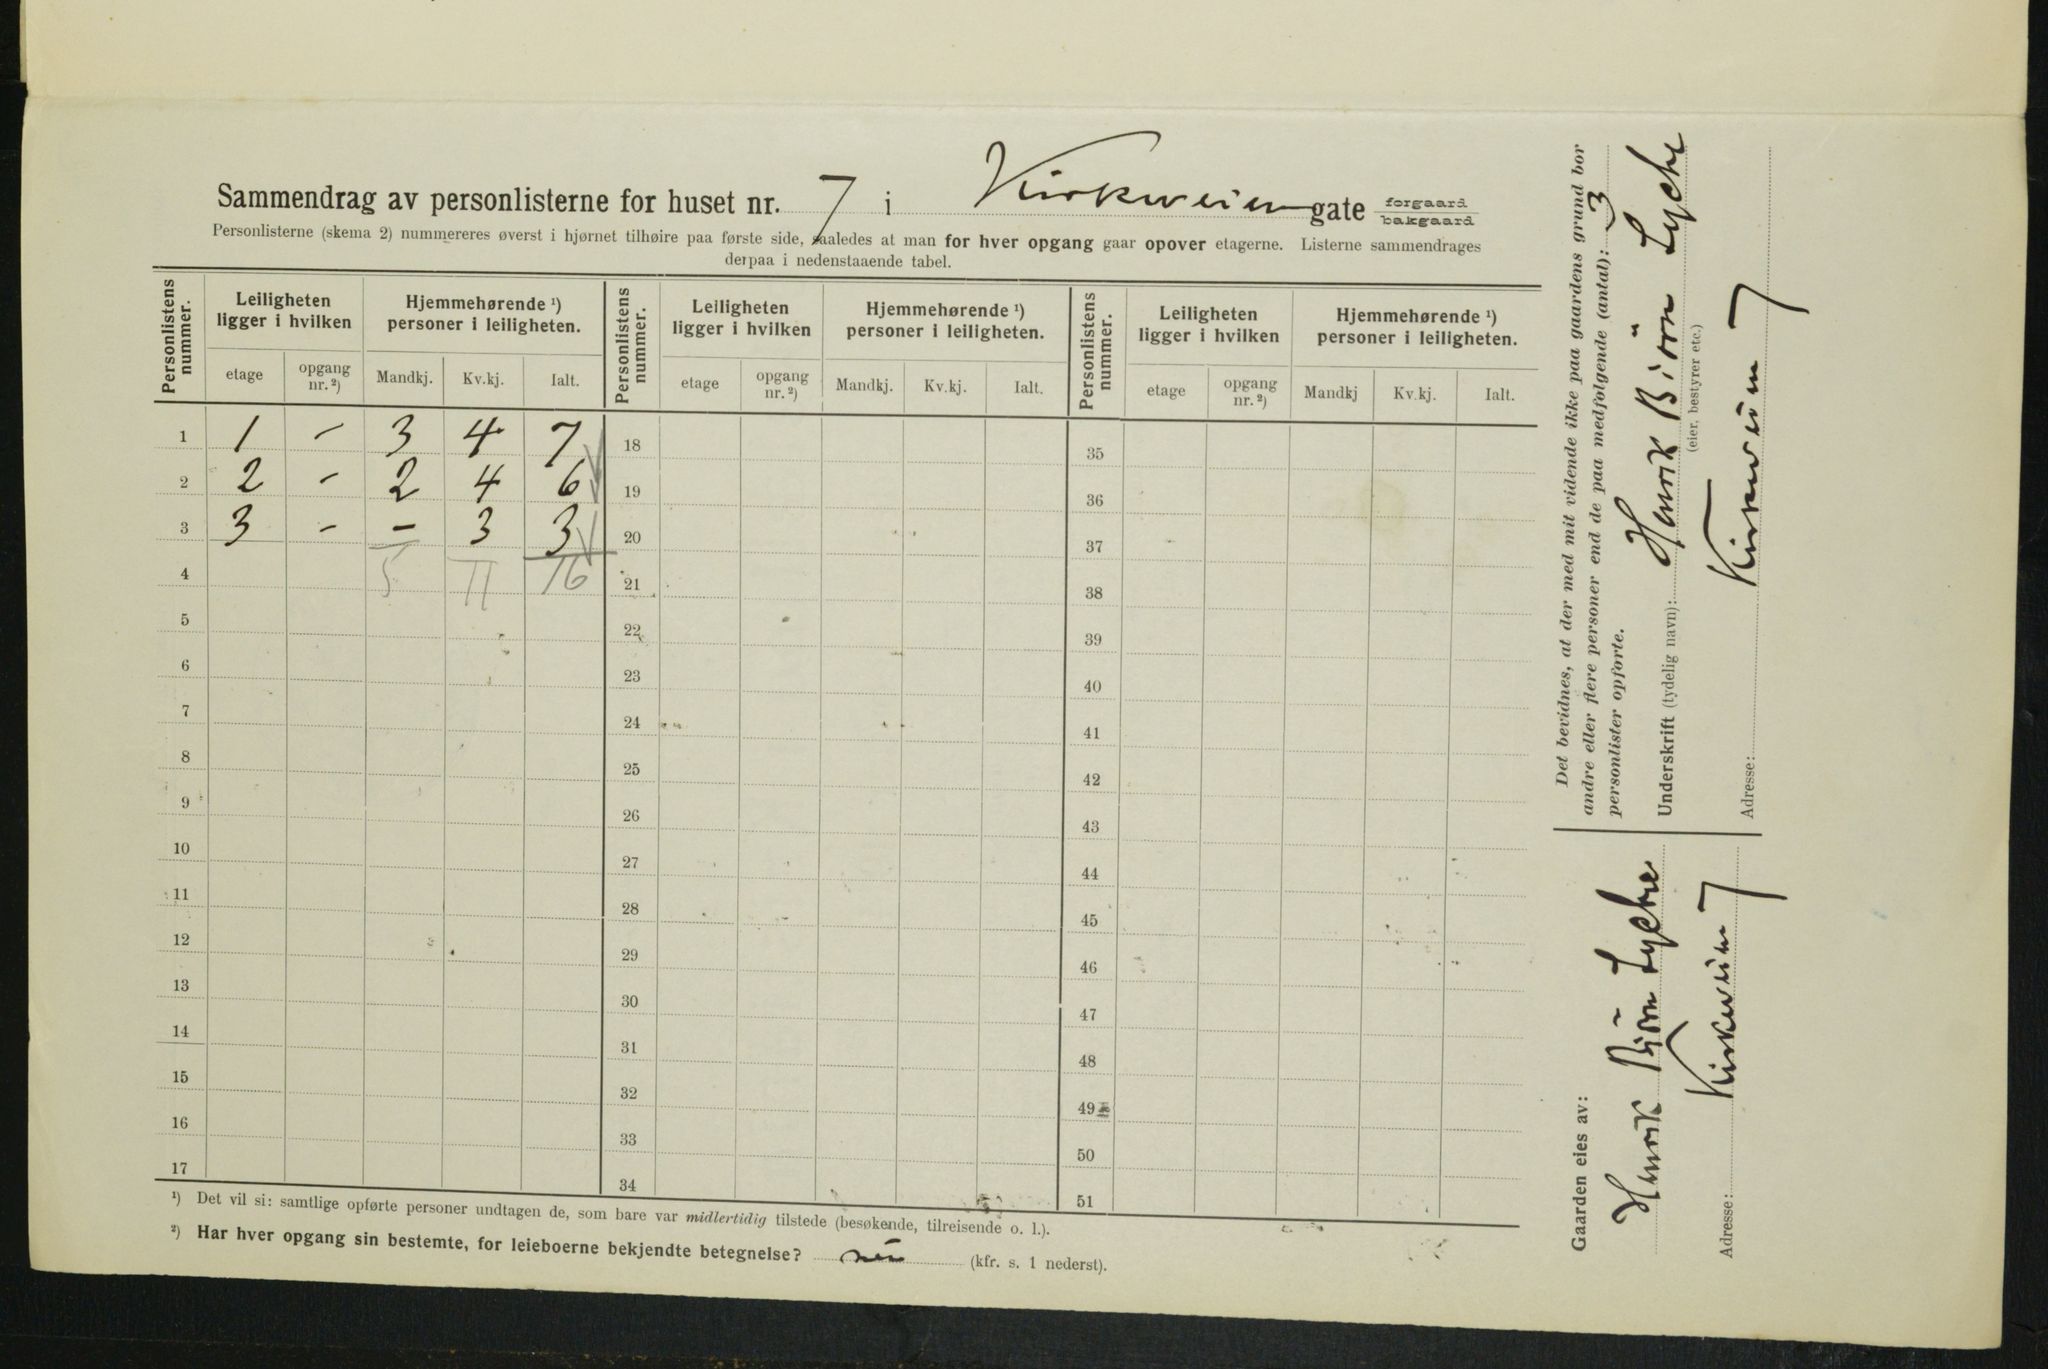 Sammendrag av personlisterne for huset nr. 7 i Kirkeveien gate forgaard bakgaard
Personlisterne (skema 2) nummereres øverst i hjørnet tilhøire paa første side, saaledes at man for hver opgang gaar opover etagerne. Listerne sammendrages
derpaa i nedenstaaende tabel.
Personlistens nummer. Leiligheten ligger i hvilken Hjemmehørende ¹) personer i leiligheten. Personlistens nummer. Leiligheten ligger i hvilken Hjemmehørende ¹) personer i leiligheten. Personlistens nummer. Leiligheten ligger i hvilken Hjemmehørende ¹) personer i leiligheten.
etage opgang nr. ²) Mandkj. Kv.kj. Ialt. etage opgang nr. ²) Mandkj. Kv.kj. Ialt. etage opgang nr. ²) Mandkj Kv.kj. Ialt.
1 1 - 3 4 7 18 35
2 2 - 2 4 6 19 36
3 3 - - 3 3 20 37
4 5 11 16 21 38
5 22 39
6 23 40
7 24 41
8 25 42
9 26 43
10 27 44
11 28 45
12 29 46
13 30 47
14 31 48
15 32 49
16 33 50
17 34 51
¹) Det vil si: samtlige opførte personer undtagen de, som bare var midlertidig tilstede (besøkende, tilreisende o. l.).
²) Har hver opgang sin bestemte, for leieboerne bekjendte betegnelse? nei (kfr. s. 1 nederst).
Det bevidnes, at der med mit vidende ikke paa gaardens grund bor
andre eller flere personer end de paa medfølgende (antal): 3
personlister opførte.
Underskrift (tydelig navn): Henrik Biörn Lyche
(eier, bestyrer etc.)
Adresse: Kirkeveien 7
Gaarden eies av:
Henrik Biörn Lyche
Adresse: Kirkeveien 7